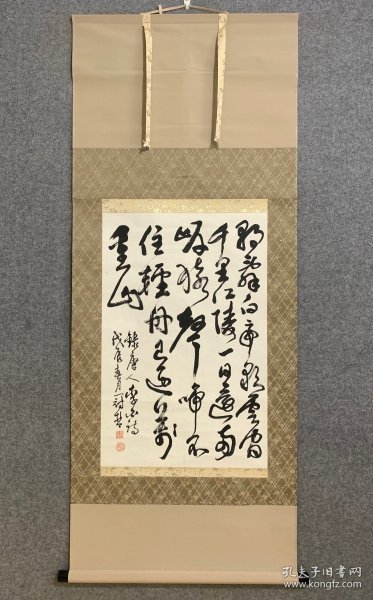 朝辭白帝彩雲間
千里江陵一日還兩
岸猿聲啼不
住輕舟已過萬
重山
錄唐人李白詩
戊辰春月
孔夫子旧书网
www.kongfz.com